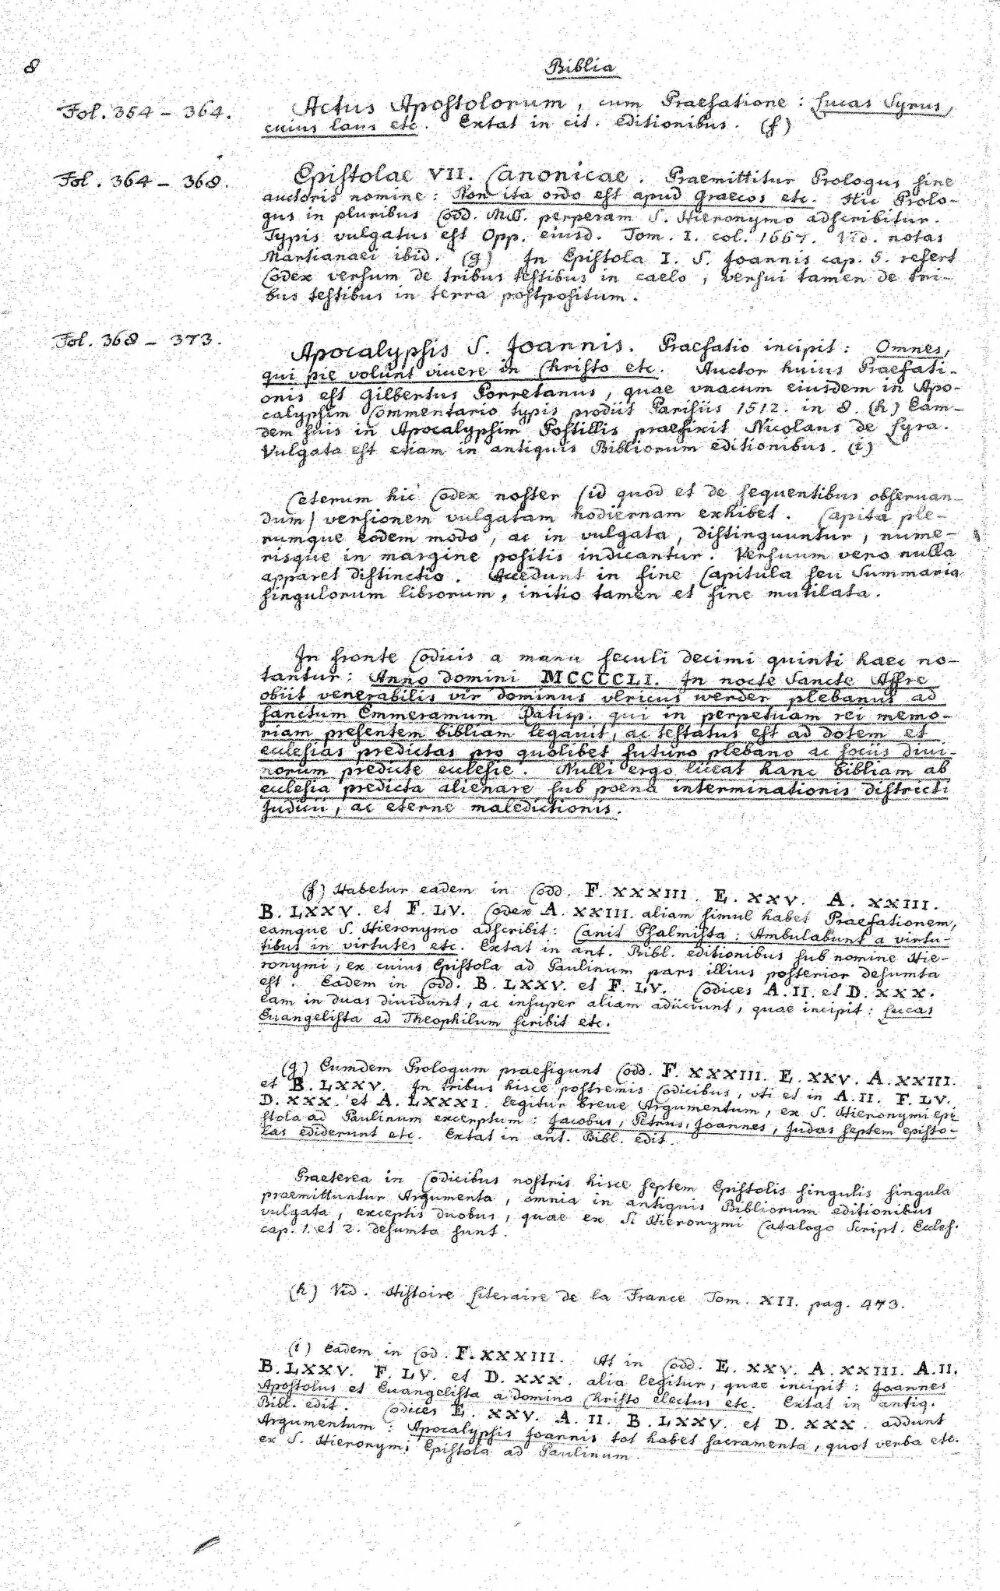 8
Biblia
Fol. 354 – 364.
Actus Apostolorum, cum Praefatione: Lucas Syrus,
cuius laus etc. Extat in cit. editionibus. (f)
Fol. 364 – 368.
Epistolae VII. Canonicae. Praemittitur Prologus sine
auctoris nomine: Non ita ordo est apud Graecos etc. Hic Prolo-
gus in pluribus Codd. MSS. perperam S. Hieronymo adscribitur.
Typis vulgatus est Opp. eiusd. Tom. I. col. 1667. Vid. notas
Martianaei ibid. (g) In Epistola I. S. Joannis cap. 5. refert
Codex versum de tribus testibus in caelo, versui tamen de tri-
bus testibus in terra postpositum.
Fol. 368 – 373.
Apocalypsis S. Joannis. Praefatio incipit: Omnes,
qui pie volunt vivere in Christo etc. Auctor huius Praefati-
onis est Gilbertus Porretanus, quae vnacum eiusdem in Apo-
calypsim Commentario typis prodiit Parisiis 1512. in 8. (h) Eam-
dem suis in Apocalypsim Postillis praefixit Nicolaus de Lyra.
Vulgata est etiam in antiquis Bibliorum editionibus. (i)
Ceterum hic Codex noster (id quod et de sequentibus obseruan-
dum) versionem vulgatam hodiernam exhibet. Capita ple-
rumque eodem modo, ac in vulgata, distinguuntur, nume-
risque in margine positis indicantur. Versuum vero nulla
apparet distinctio. Accedunt in fine Capitula seu Summaria
singulorum librorum, initio tamen et fine mutilata.
In fronte Codicis a manu seculi decimi quinti haec no-
tantur: Anno domini MCCCCLI. In nocte Sancte Affre
obiit venerabilis vir dominus vlricus werder plebanus ad
sanctum Emmeramum Ratisp. qui in perpetuam rei memo-
riam presentem bibliam legauit, ac testatus est ad dotem et
ecclesias predictas pro quolibet futuro plebano ac sociis diui-
norum predicte ecclesie. Nulli ergo liceat hanc bibliam ab
ecclesia predicta alienare sub poena interminationis districti
Judicii, ac eterne maledictionis.
(f) Habetur eadem in Codd. F. XXXIII. E. XXV. A. XXIII.
B. LXXV. et F. LV. Codex A. XXIII. aliam simul habet Praefationem,
eamque S. Hieronymo adscribit: Canit Psalmista: Ambulabunt a virtu-
tibus in virtutes etc. Extat in ant. Bibl. editionibus sub nomine Hie-
ronymi, ex cuius Epistola ad Paulinum pars illius posterior desumta
est. Eadem in Codd. B. LXXV. et F. LV. Codices A. II. et D. XXX.
eam in duas diuidunt, ac insuper aliam adiiciunt, quae incipit: Lucas
Euangelista ad Theophilum scribit etc.
(g) Eumdem Prologum praefigunt Codd. F. XXXIII. E. XXV. A. XXIII.
et B. LXXV. In tribus hisce postremis Codicibus, vti et in A. II. F. LV.
D. XXX. et A. LXXXI. legitur breue Argumentum, ex S. Hieronymi Epi
stola ad Paulinum excerptum: Jacobus, Petrus, Joannes, Judas septem episto-
las ediderunt etc. Extat in ant. Bibl. edit.
Praeterea in Codicibus nostris hisce septem Epistolis singulis singula
praemittuntur Argumenta, omnia in antiquis Bibliorum editionibus
vulgata, exceptis duobus, quae ex S. Hieronymi Catalogo Script. Eccles.
cap. 1. et 2. desumta sunt.
(h) Vid. Histoire literaire de la France Tom. XII. pag. 473.
(i) Eadem in Cod. F. XXXIII. At in Codd. E. XXV. A. XXIII. A. II.
B. LXXV. F. LV. et D. XXX. alia legitur, quae incipit: Joannes
Apostolus et Euangelista a domino Christo electus etc. Extat in antiq.
Bibl. edit. Codices E. XXV. A. II. B. LXXV. et D. XXX. addunt
Argumentum: Apocalypsis Joannis tot habet sacramenta, quot verba etc.
ex S. Hieronymi Epistola ad Paulinum.